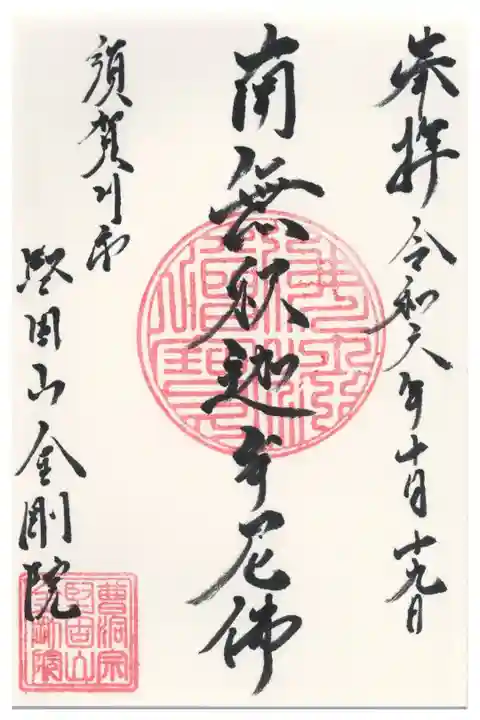 奉拝 令和六年十月十九日
南無釈迦牟尼佛
須賀川市
堅田山金剛院
曹洞宗
堅田山
金剛院